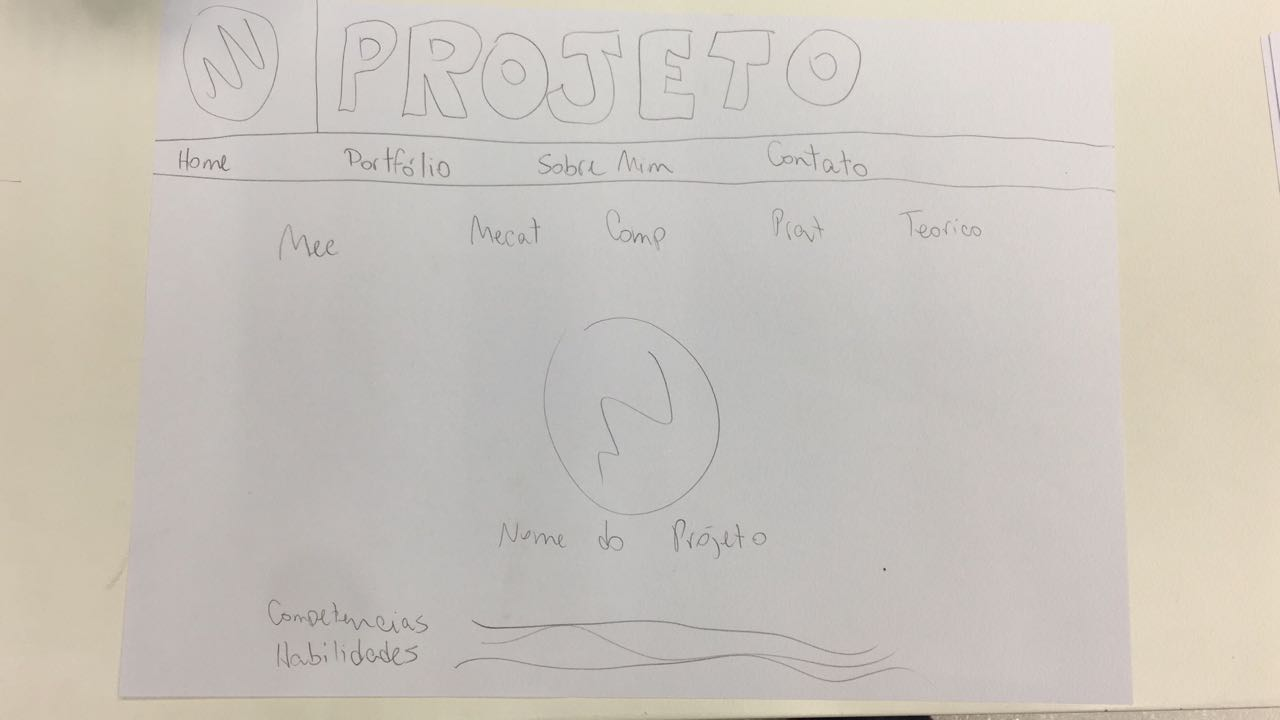 PROJETO
Home Portfólio Sobre Mim Contato
Mec Mecat Comp Prat Teorico
Nome do Prójeto
Competencias
Habilidades